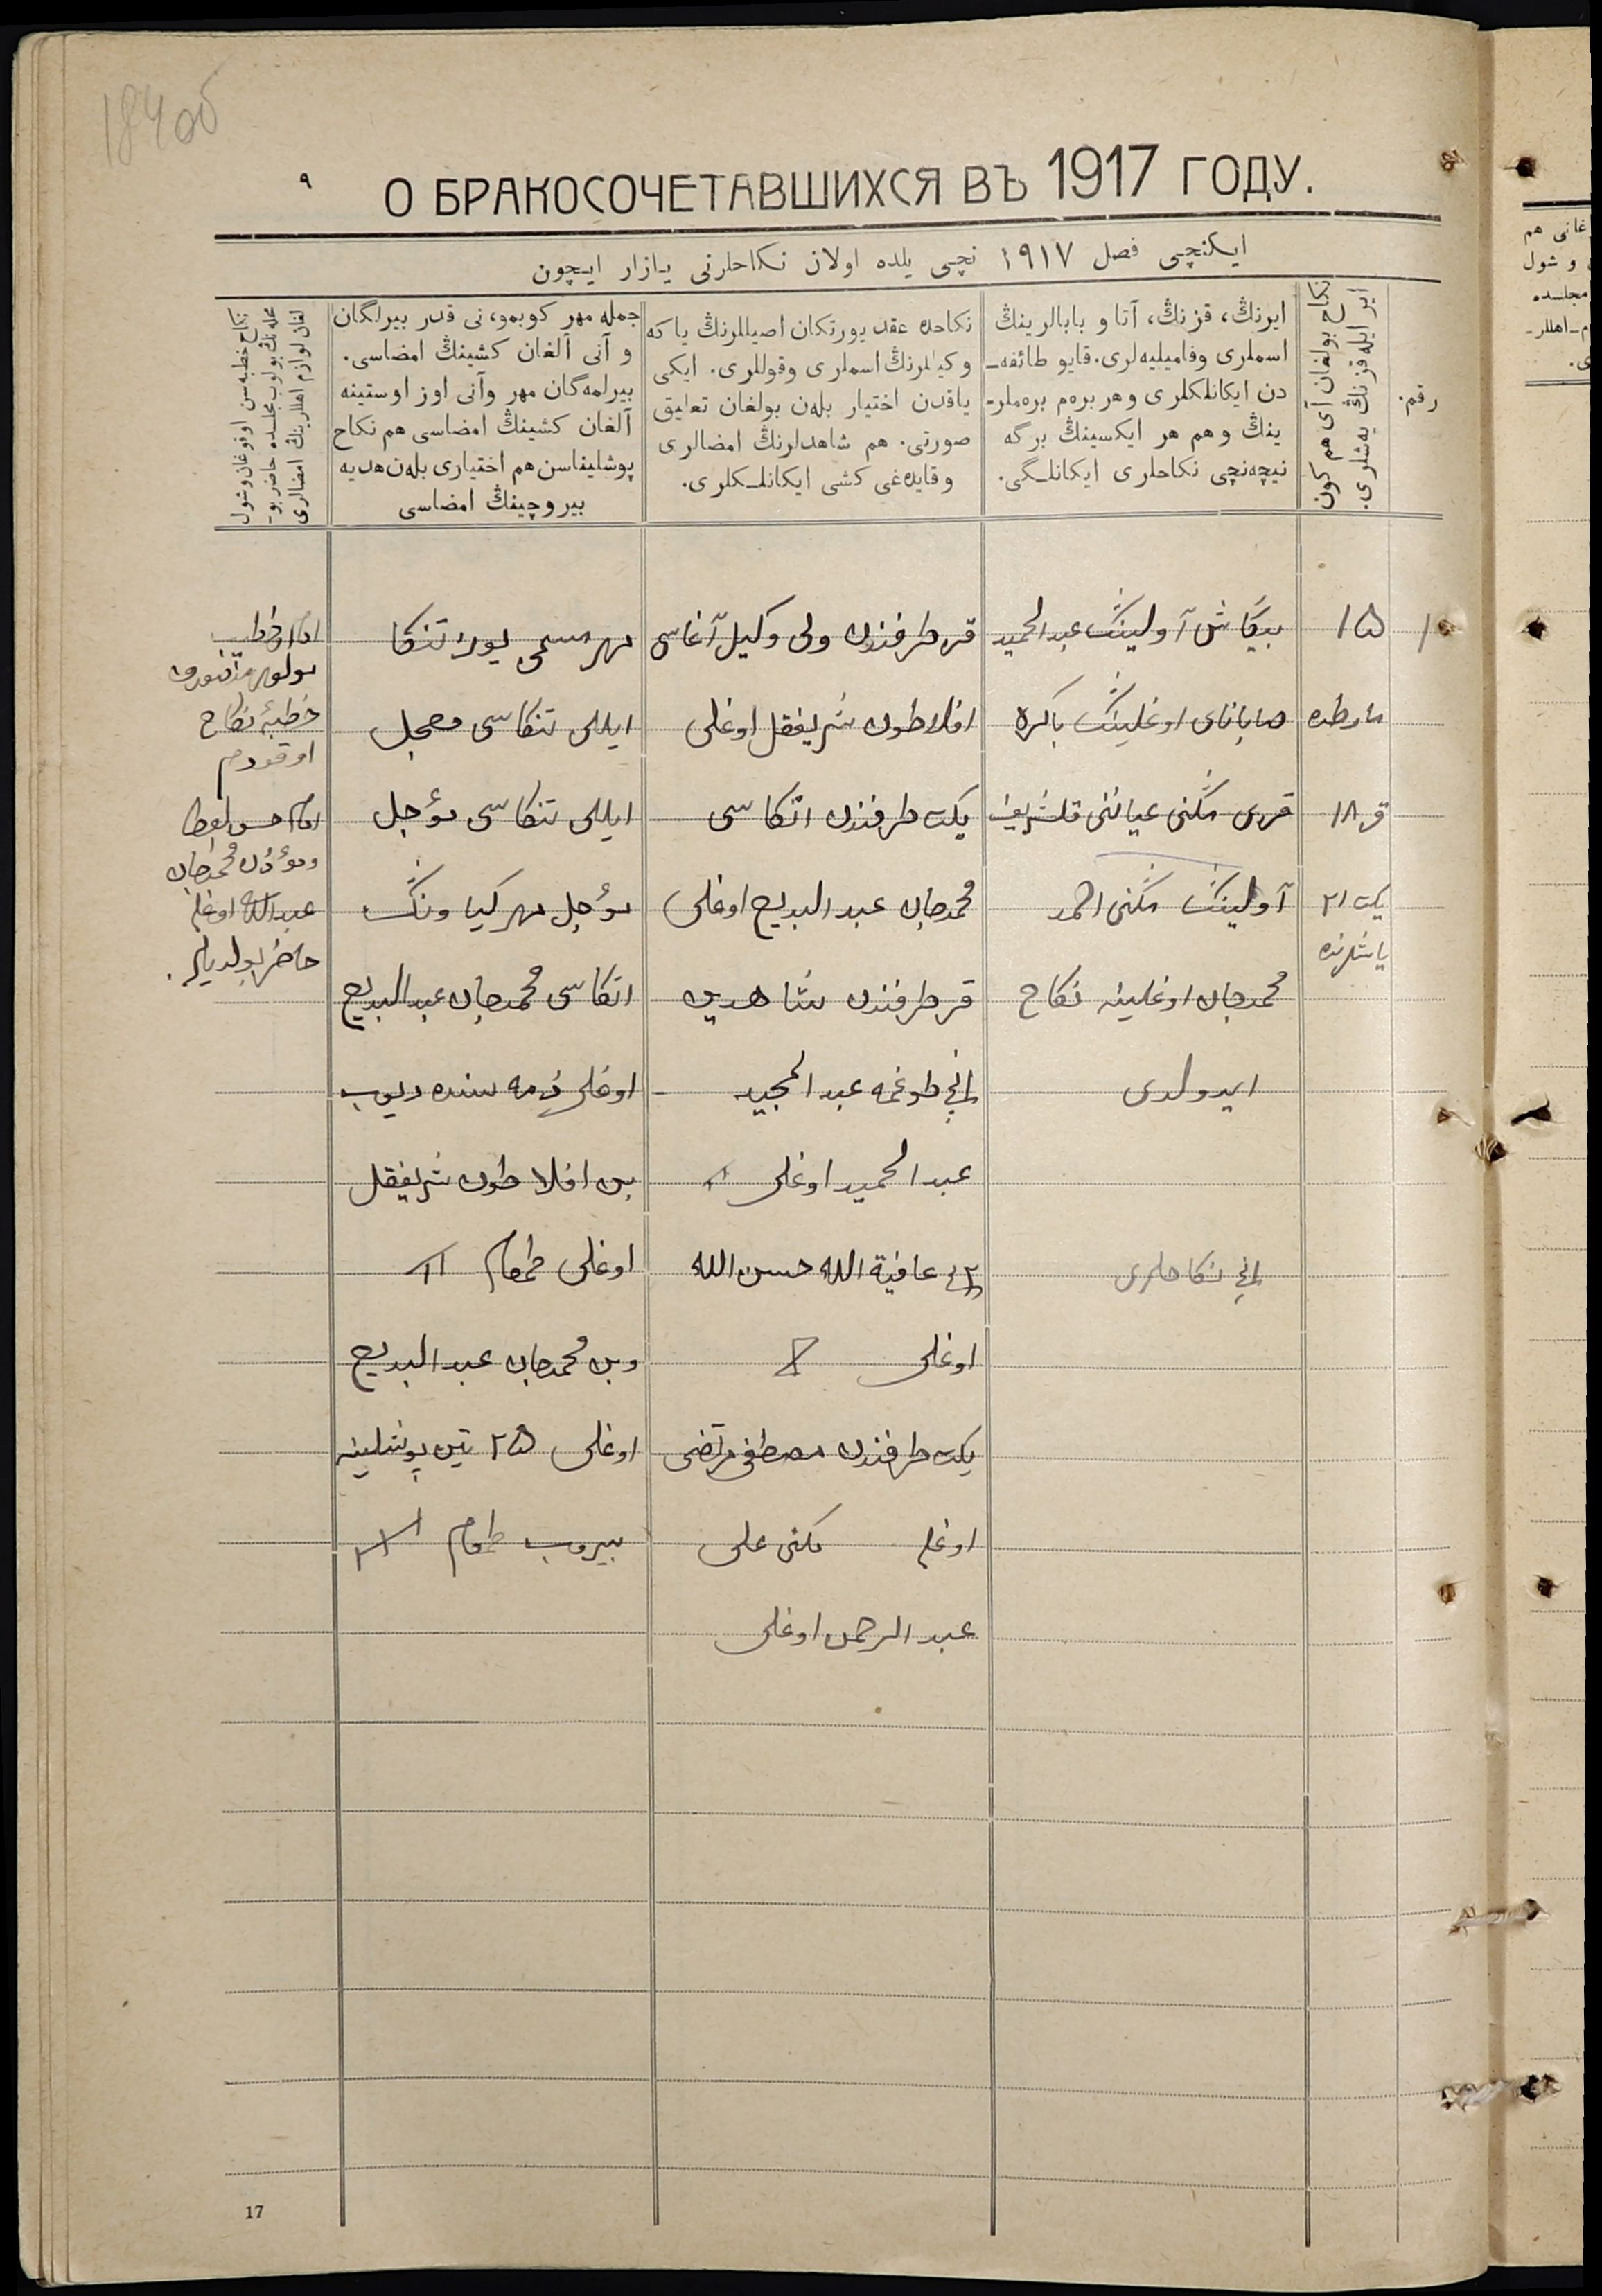 184об
٩
О БРАКОСОЧЕТАВШИХСЯ ВЪ 1917 ГОДУ.
ایکنچی فصل ١٩١٧ نچی یلده اولان نکاحلرنی یازار ایچون
رقم.
نکاح بولغان آی هم کون
ایر ایله قزنڭ یه‌شلری.
ایرنڭ، قزنڭ، آتا و بابالرینڭ
اسملری وفامیلیه‌لری. قایو طائفه‌ـ
دن ایکانلکلری و هر بره‌م بره‌ملرـ
ینڭ و هم هر ایکسینڭ برگه
نیچه‌نچی نکاحلری ایکانلـگی.
نکاحده عقد یورتکان اصیللرنڭ یا که
وکیللرنڭ اسملری وقوللری. ایکی
یاقدن اختیار بله‌ن بولغان تعلیق
صورتی. هم شاهدلرنڭ امضالری
وقایده‌غی کشی ایکانلـکلری.
جمله مهر کوبمو، نی قدر بیرلگان
و آنی آلغان کشینڭ امضاسی.
بیرلمه‌گان مهر وآنی اوز اوستینه
آلغان کشینڭ امضاسی هم نکاح
پوشلیناسن هم اختیاری بله‌ن هدیه
بیروچینڭ امضاسی
نکاح خطبه‌سن اوقوغان وشول
محله‌نڭ بولوب مجلسده حاضر بوـ
لغان لوازم اهللارینڭ امضالری
١
١٥
مارطده
قز ١٨
یکت ٢١
یاشلرنده
بیکاش آولینڭ عبدالحمید
صاباناى اوغلینڭ باکره
قزى
آولینڭ احمد
محمدجان اوغلینه نکاح
ایدولدى
١نچی نکاحلرى
قز طرفندن ولى وکیل آغاسى
افلاطون شریفقل اوغلى
یکت طرفندن اتکاسى
محمدجان عبدالبدیع اوغلى
قز طرفندن شاهدین
١نچی طوغمه عبدالمجید
عبدالحمید اوغلى
٢نچی عافیة الله حسن الله
اوغلى
یکت طرفندن مصطفى مرتضى
اوغلى على
عبدالرحمن اوغلى
مهر مسمى یوز تنکا
ایللى تنکاسى معجل
ایللى تنکاسى مؤجل
مؤجل مهر کیاونڭ
اتکاسى محمدجان عبدالبدیع
اوغلى ذمه سنده دیوب
بن افلاطون شریفقل
اوغلى طمغام
وبن محمدجان عبدالبدیع
اوغلى ٢٥ تین پوشلینه
بیروب طمغام
امام خطیب
خطبۀ نکاح
اوقودم
امام
ومؤذن محمدجان
عبدالله اوغلى
حاضر بولدیلر.
17
غانی هم
و شول
مجلسده